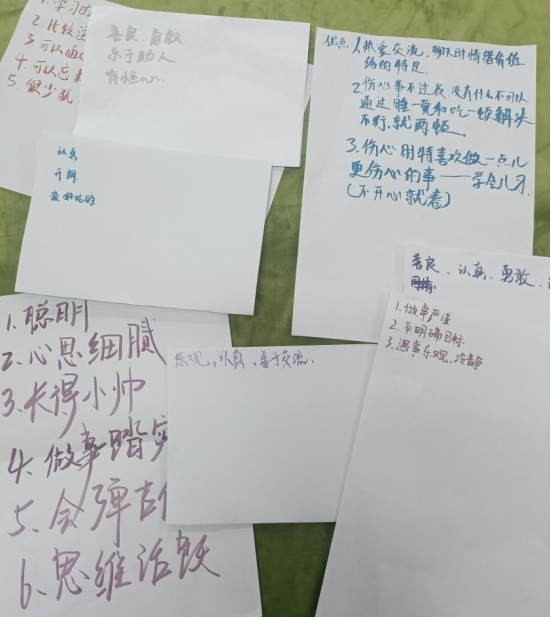 1.学习
2.比较
3.可以
4.可以忘
5.很少
善良、勇敢
乐于助人
有恒心
认真
开朗
爱好吃的
优点 1.热爱交流，聊天时情绪价值
给的特足
2.伤心事不过夜，没有什么不可以
通过睡一觉和吃一顿解决
不行，就两顿
3.伤心时特喜欢做一点儿
更伤心的事——学会儿习
(不开心就卷)
善良、认真、勇敢、
1.做事严谨
2.有明确目标
3.遇事乐观，冷静
1.聪明
2.心思细腻
3.长得小帅
4.做事踏实
5.会弹吉
6.思维活跃
乐观、认真、善于交流.